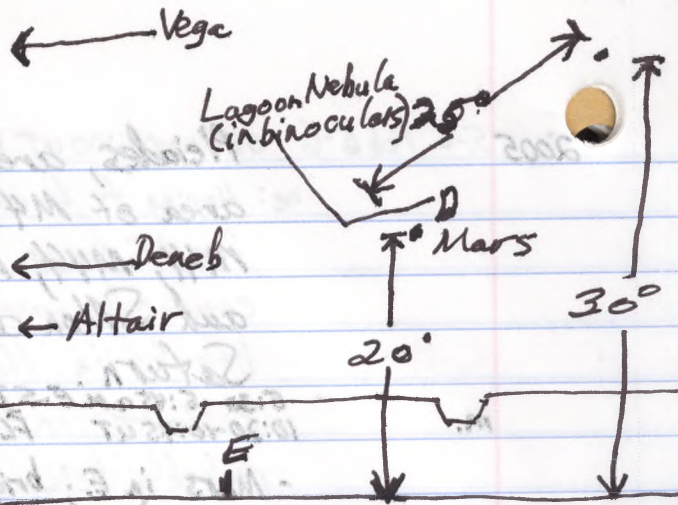 Vega
Lagoon Nebula
(in binoculars)
Mars
Deneb
Altair
30°
20°
E